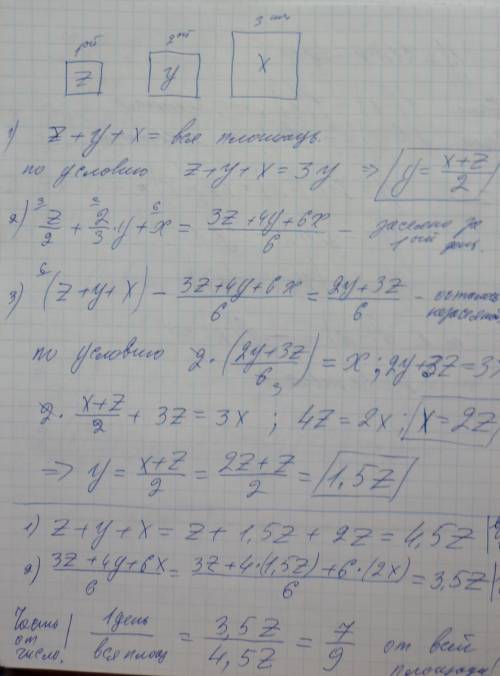 1ый 2ой 3ий
z y x
1) z + y + x = вся площадь.
по условию z + y + x = 3y ⇒ y = (x+z)/2
2) z/2 + 2/3 · y + x = (3z + 4y + 6x)/6 – засеяно за 1ый день.
3) (z + y + x) – (3z + 4y + 6x)/6 = (2y + 3z)/6 – осталось незасеянной
по условию 2 · ((2y + 3z)/6) = x ; 2y + 3z = 3x
2 · (x+z)/2 + 3z = 3x ; 4z = 2x ; x = 2z
⇒ y = (x+z)/2 = (2z+z)/2 = 1,5z
1) z + y + x = z + 1,5z + 2z = 4,5z
2) (3z + 4y + 6x)/6 = (3z + 4·(1,5z) + 6·(2x))/6 = 3,5z
Часть от число, 1 день/вся площ = 3,5z/4,5z = 7/9 от всей площади!